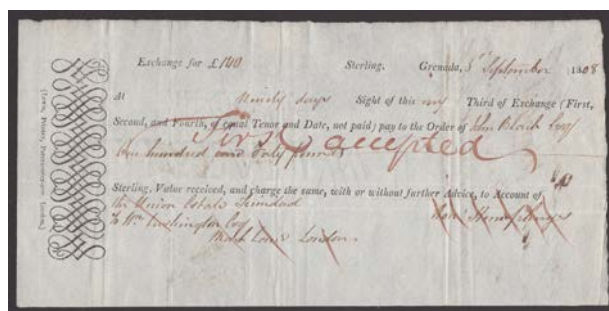 Exchange for £140 Sterling. Grenada, 5th September 1808
At Ninety days Sight of this my Third of Exchange (First,
Second, and Fourth, of equal Tenor and Date, not paid) pay to the Order of John Esq
One hundred and Forty pounds
First accepted
Sterling, Value received, and charge the same, with or without further Advice, to Account of
the Union Estate Trinidad
To Wm Lushington Esq
Mark Lane London.